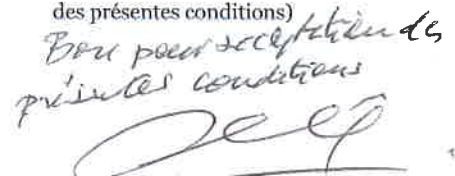 des présentes conditions)
Bon pour acceptation des
présentes conditions